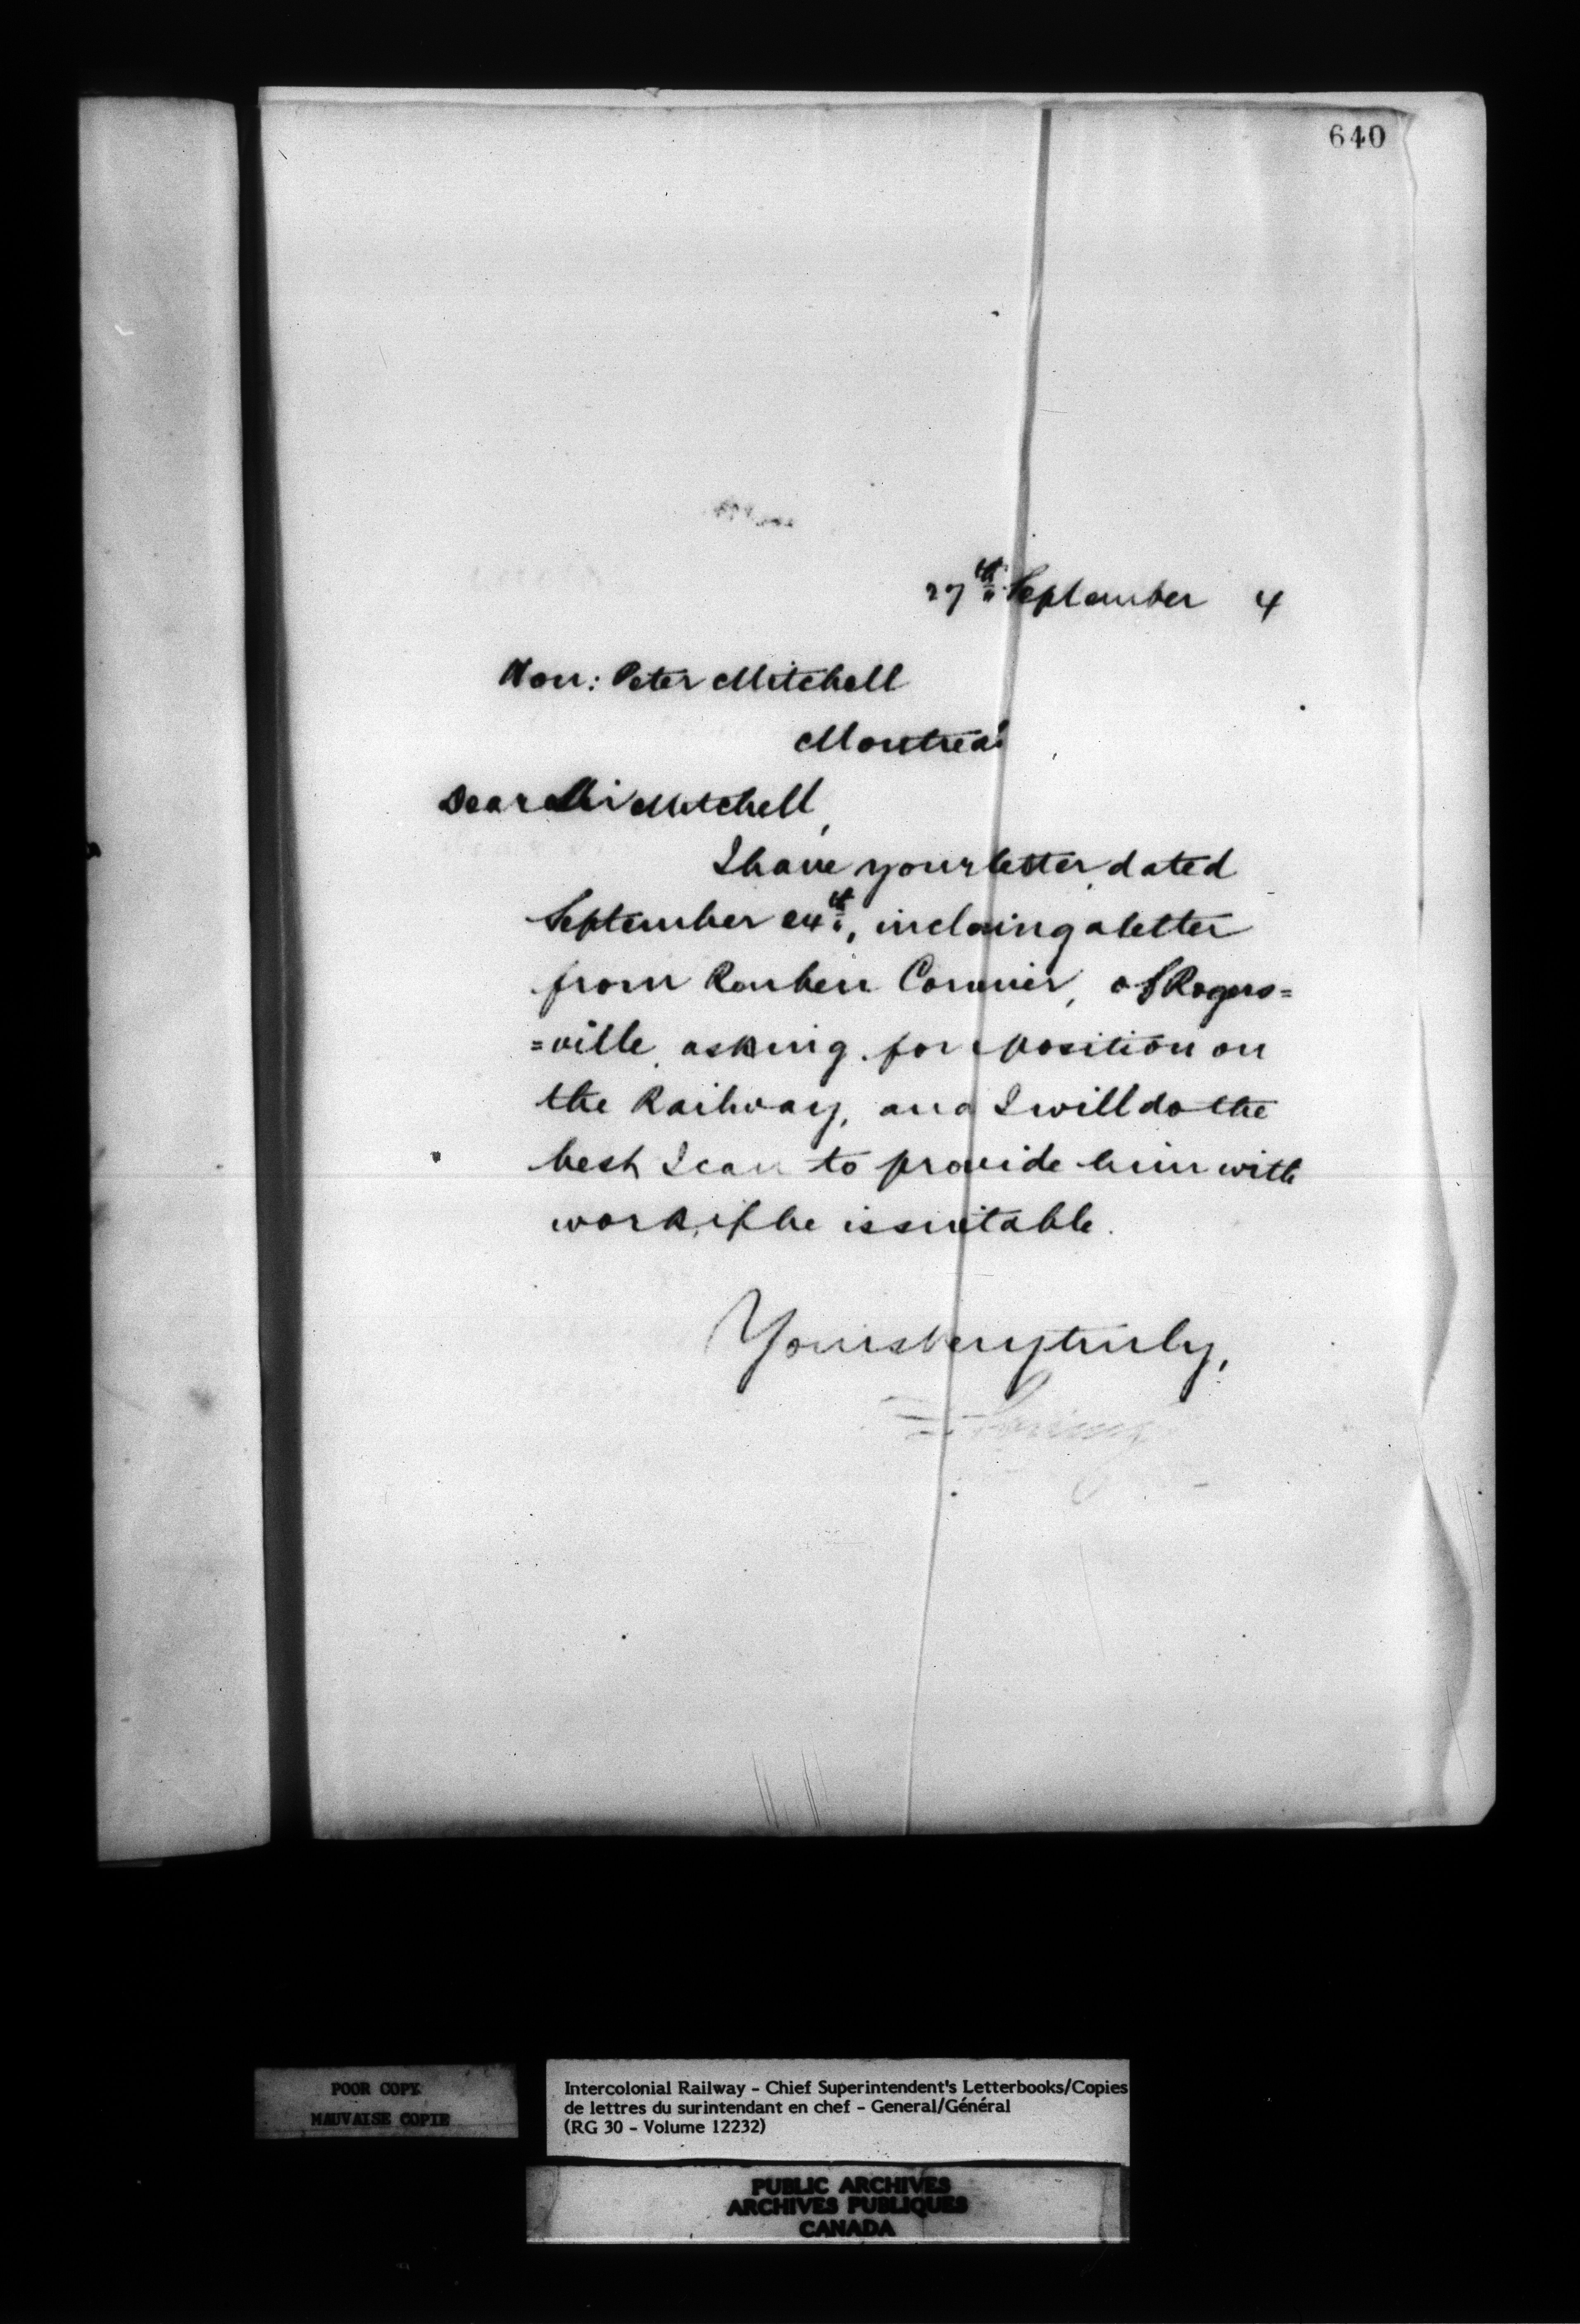 640
27th September 4
Hon: Peter Mitchell
Montreal
Dear Mr Mitchell,
I have your letter dated
September 24th, inclosing a letter
from Reuben Cormier, of Rogers=
=ville asking for position on
the Railway, and I will do the
best I can to provide him with
work, if he is suitable.
Yours very truly,
POOR COPY
MAUVAISE COPIE
Intercolonial Railway - Chief Superintendent's Letterbooks/Copies
de lettres du surintendant en chef - General/Général
(RG 30 - Volume 12232)
PUBLIC ARCHIVES
ARCHIVES PUBLIQUES
CANADA